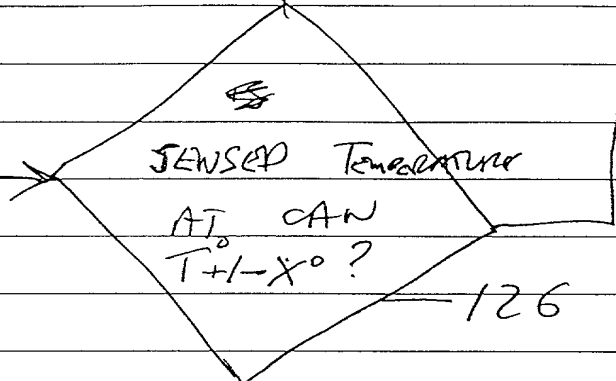 SENSED TEMPERATURE
AT CAN
T° +/- X° ?
126